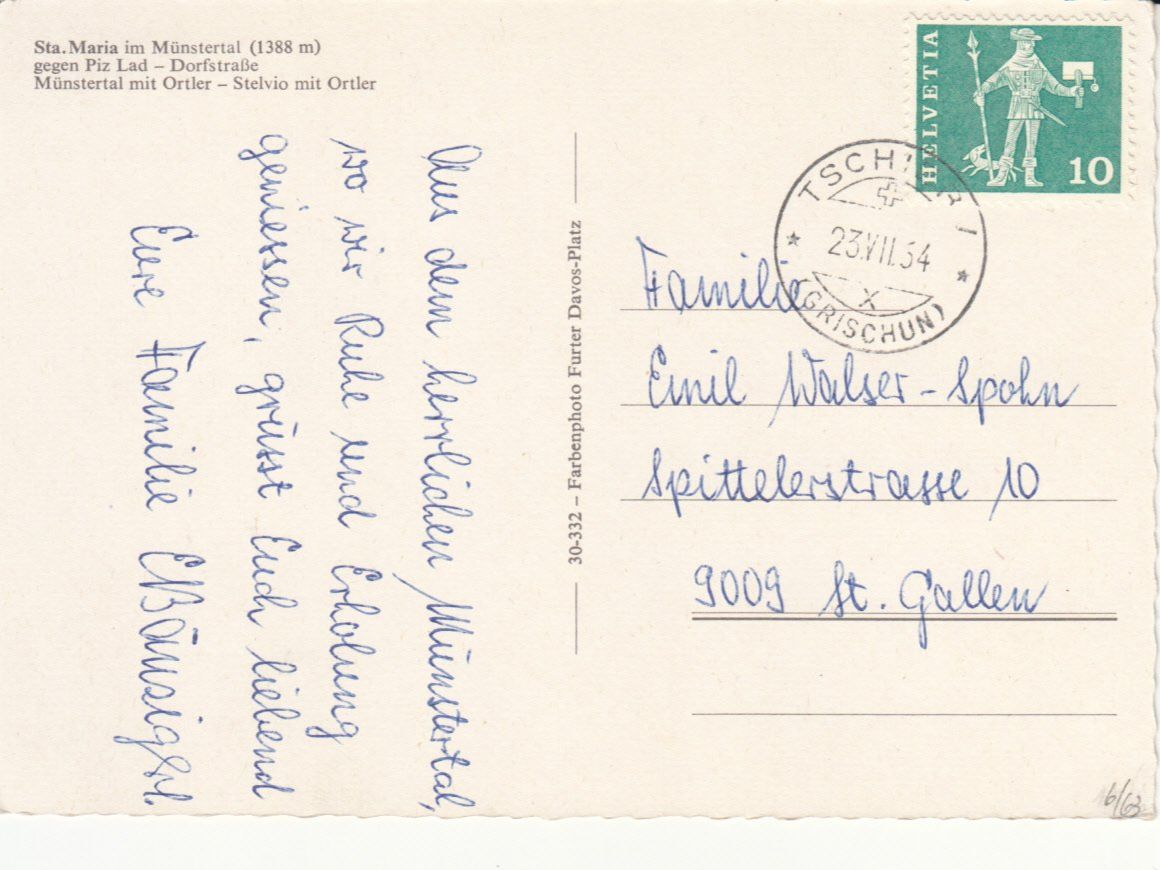 Sta. Maria im Münstertal (1388 m)
gegen Piz Lad – Dorfstraße
Münstertal mit Ortler – Stelvio mit Ortler
Aus dem herrlichen Münstertal,
wo wir Ruhe und Erholung
geniessen, grüsst Euch liebend
Eure Familie
30-332 – Farbenphoto Furter Davos-Platz
HELVETIA
10
TSCHIERV
23.VII.64
X
(GRISCHUN)
Familie
Emil Walser-Spohn
Spittelerstrasse 10
9009 St. Gallen
6/63